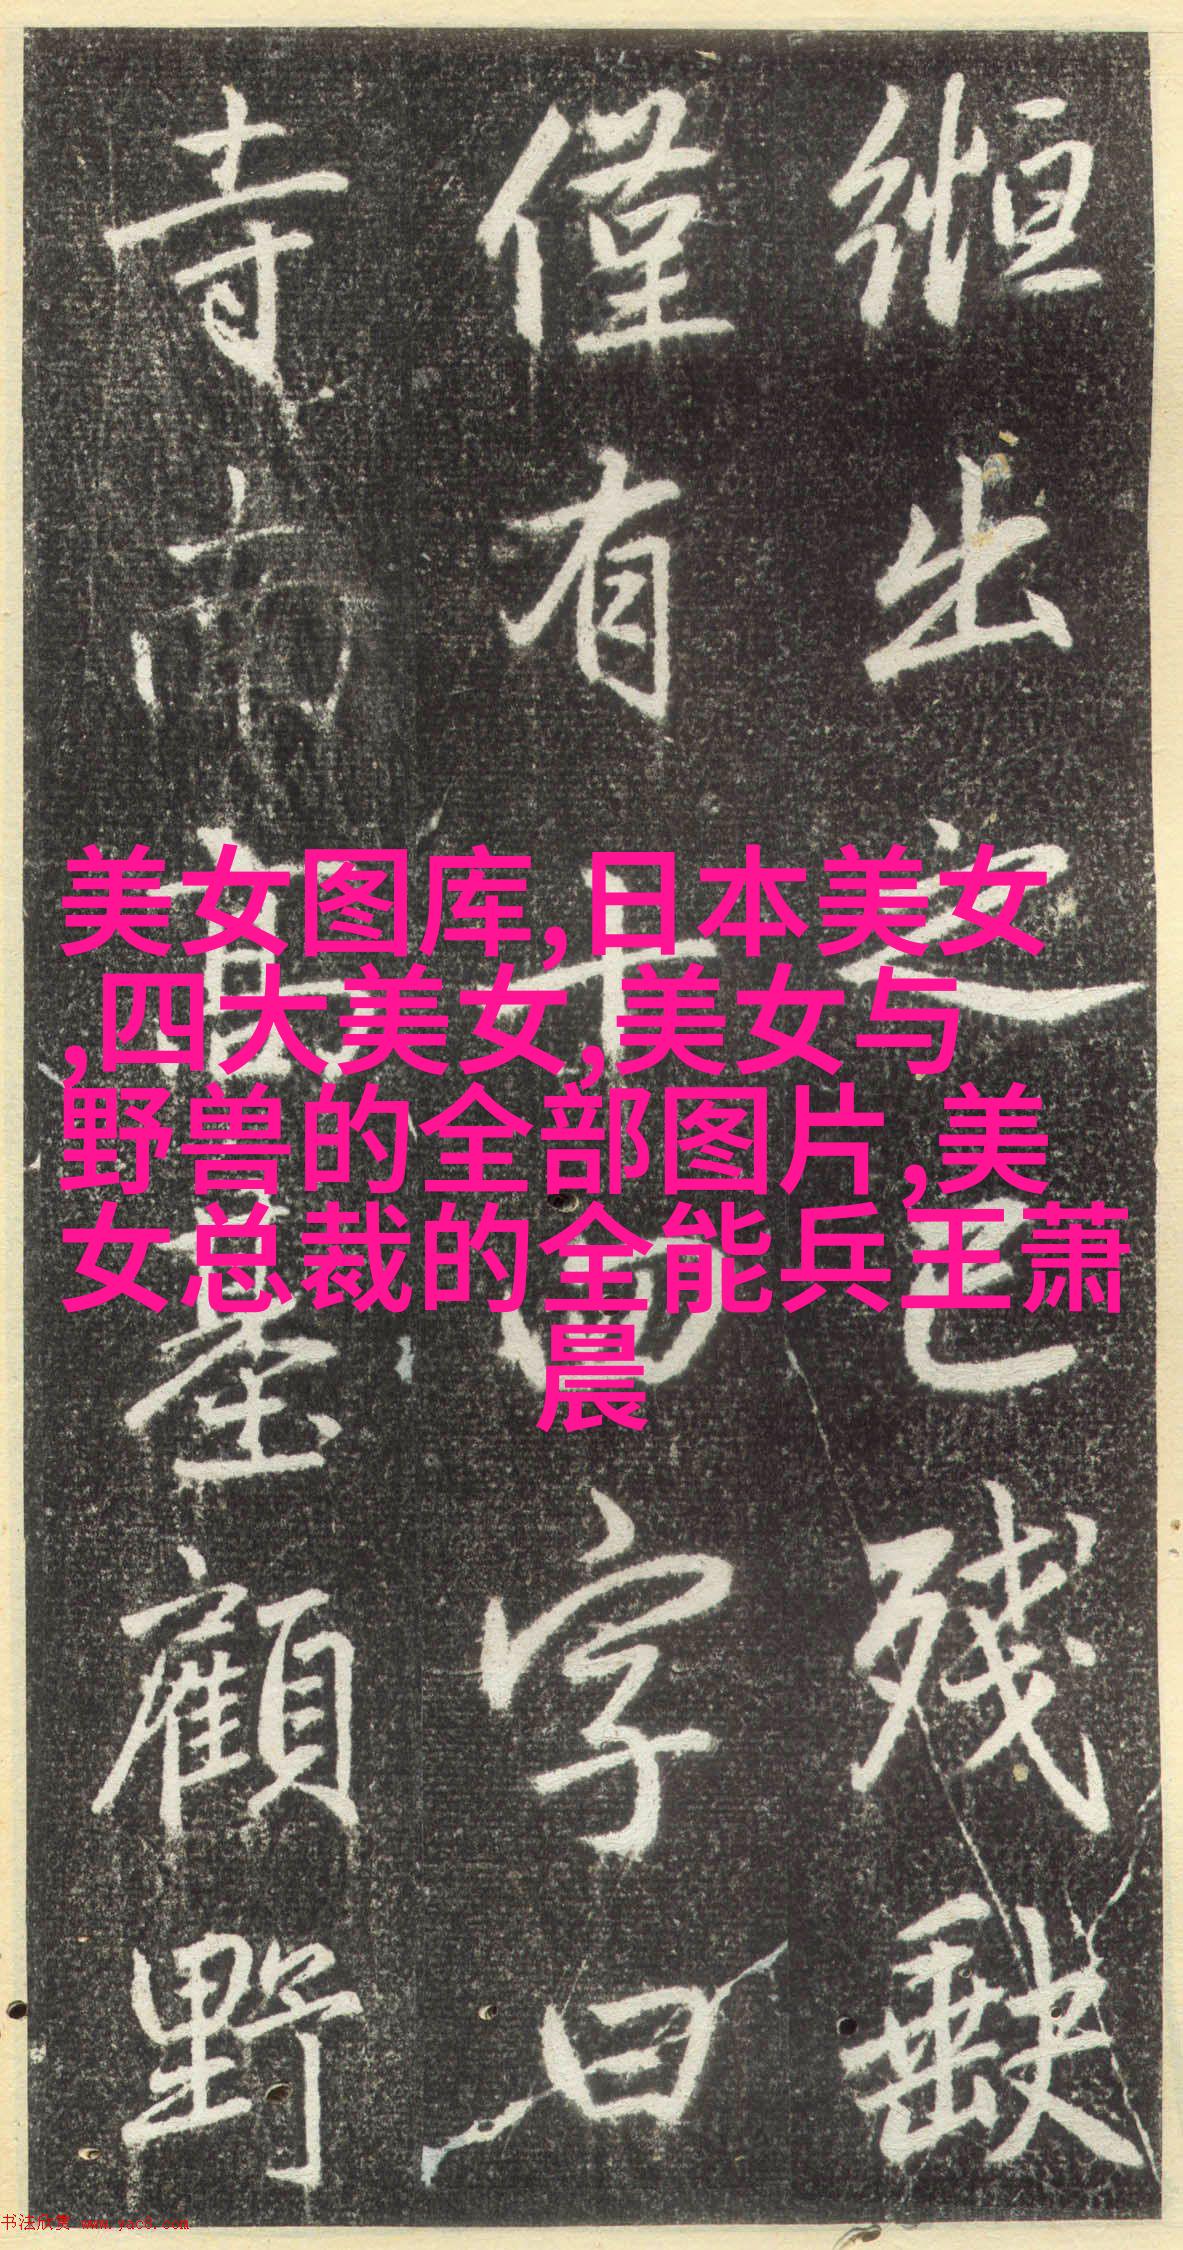 美女图库,日本美女
,四大美女,美女与
野兽的全部图片,美
女总裁的全能兵王萧
晨
縆出之已残缺
僅有十四字曰
寺南高臺顧野
书法欣赏 www.yac8.com